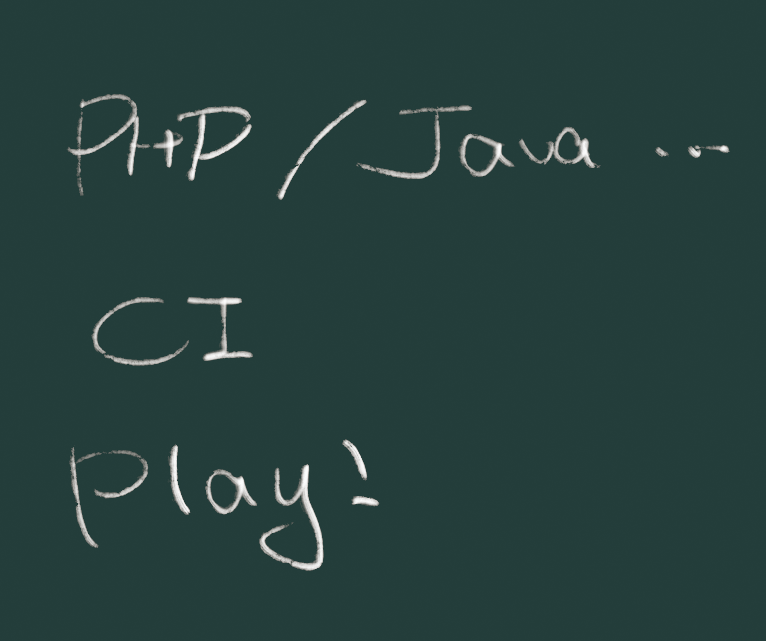 PHP / Java ...
CI
Play!